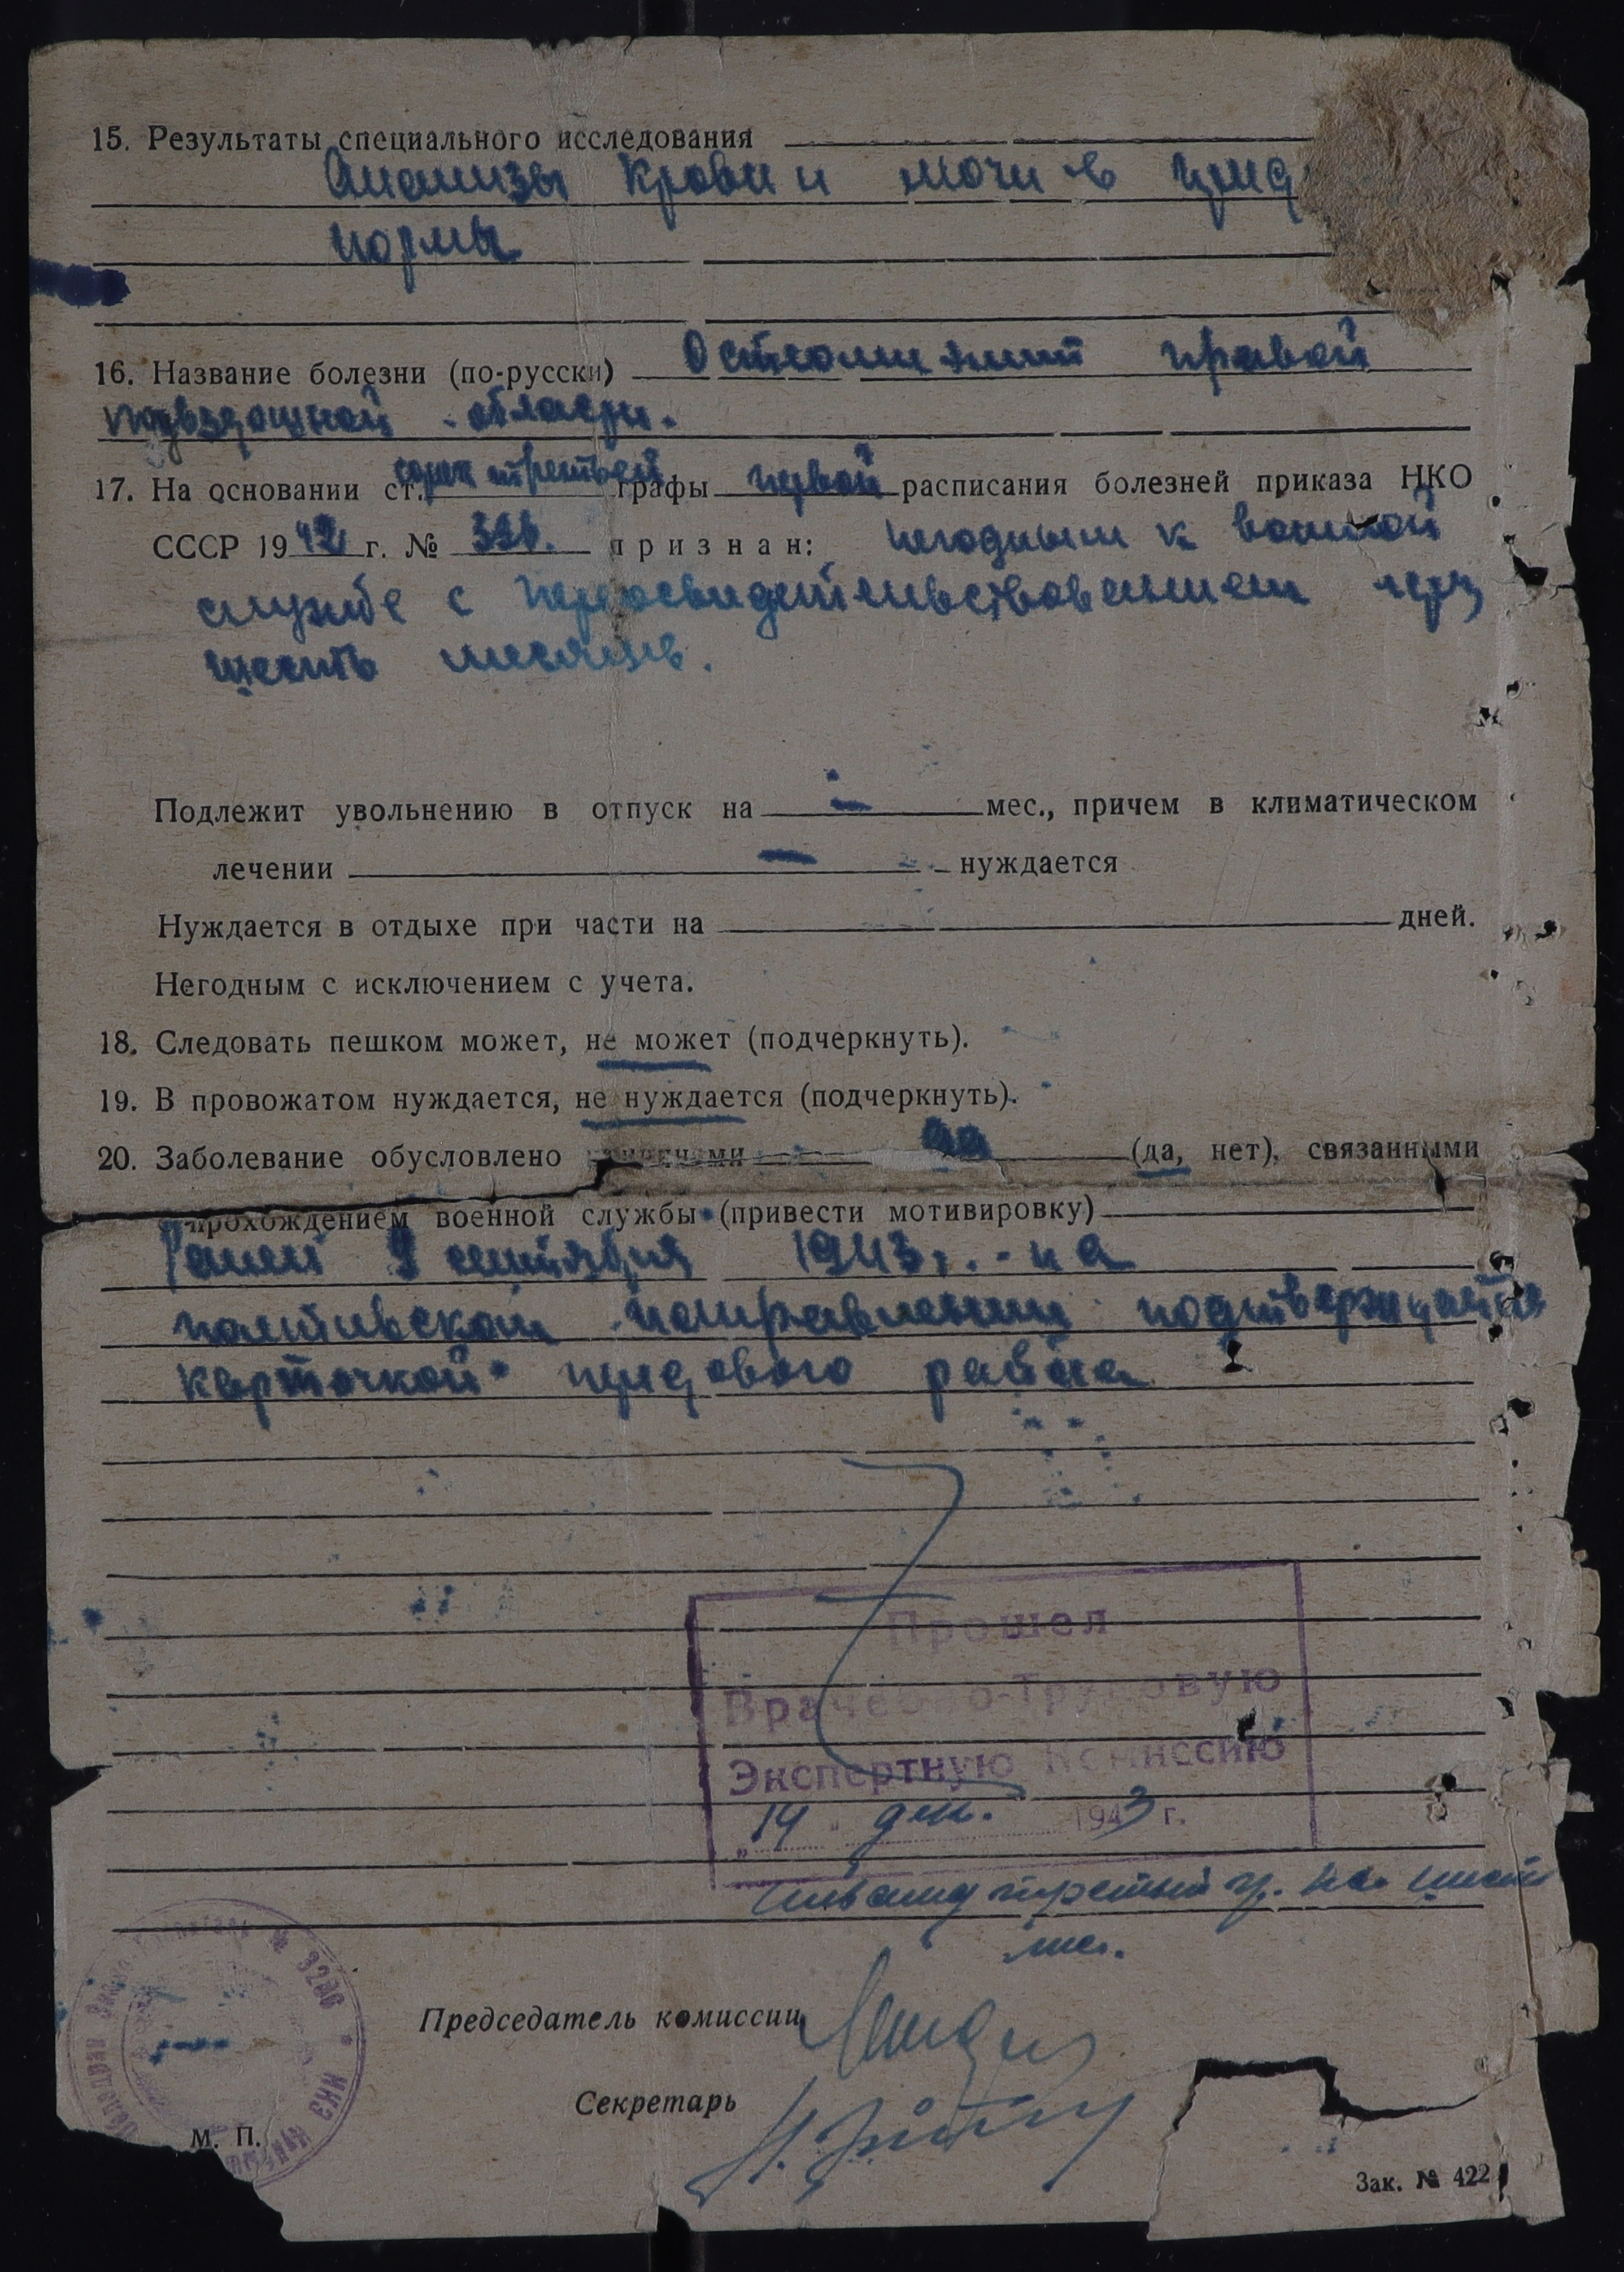 15. Результаты специального исследования
Анализы крови и мочи в
нормы
16. Название болезни (по-русски) Остеомиэлит правой
подвздошной области.
17. На основании ст. сорок третьей графы первой расписания болезней приказа НКО
СССР 1942 г. № 336. признан: негодным к военной
службе с переосвидетельствованием через
шесть месяцев.
Подлежит увольнению в отпуск на — мес., причем в климатическом
лечении — нуждается
Нуждается в отдыхе при части на дней.
Негодным с исключением с учета.
18. Следовать пешком может, не может (подчеркнуть).
19. В провожатом нуждается, не нуждается (подчеркнуть).
20. Заболевание обусловлено да (да, нет), связанными
прохождением военной службы (привести мотивировку)
Ранен 9 сентября 1943 г. - на
полтавском направлении подтверждается
карточкой передового района
Прошел
Врачебно-Трудовую
Экспертную Комиссию
„14" дек. 1943 г.
инвалид третьей гр. на шесть
мес.
№ 3260
Председатель комиссии
Секретарь
М. П.
Зак. № 422